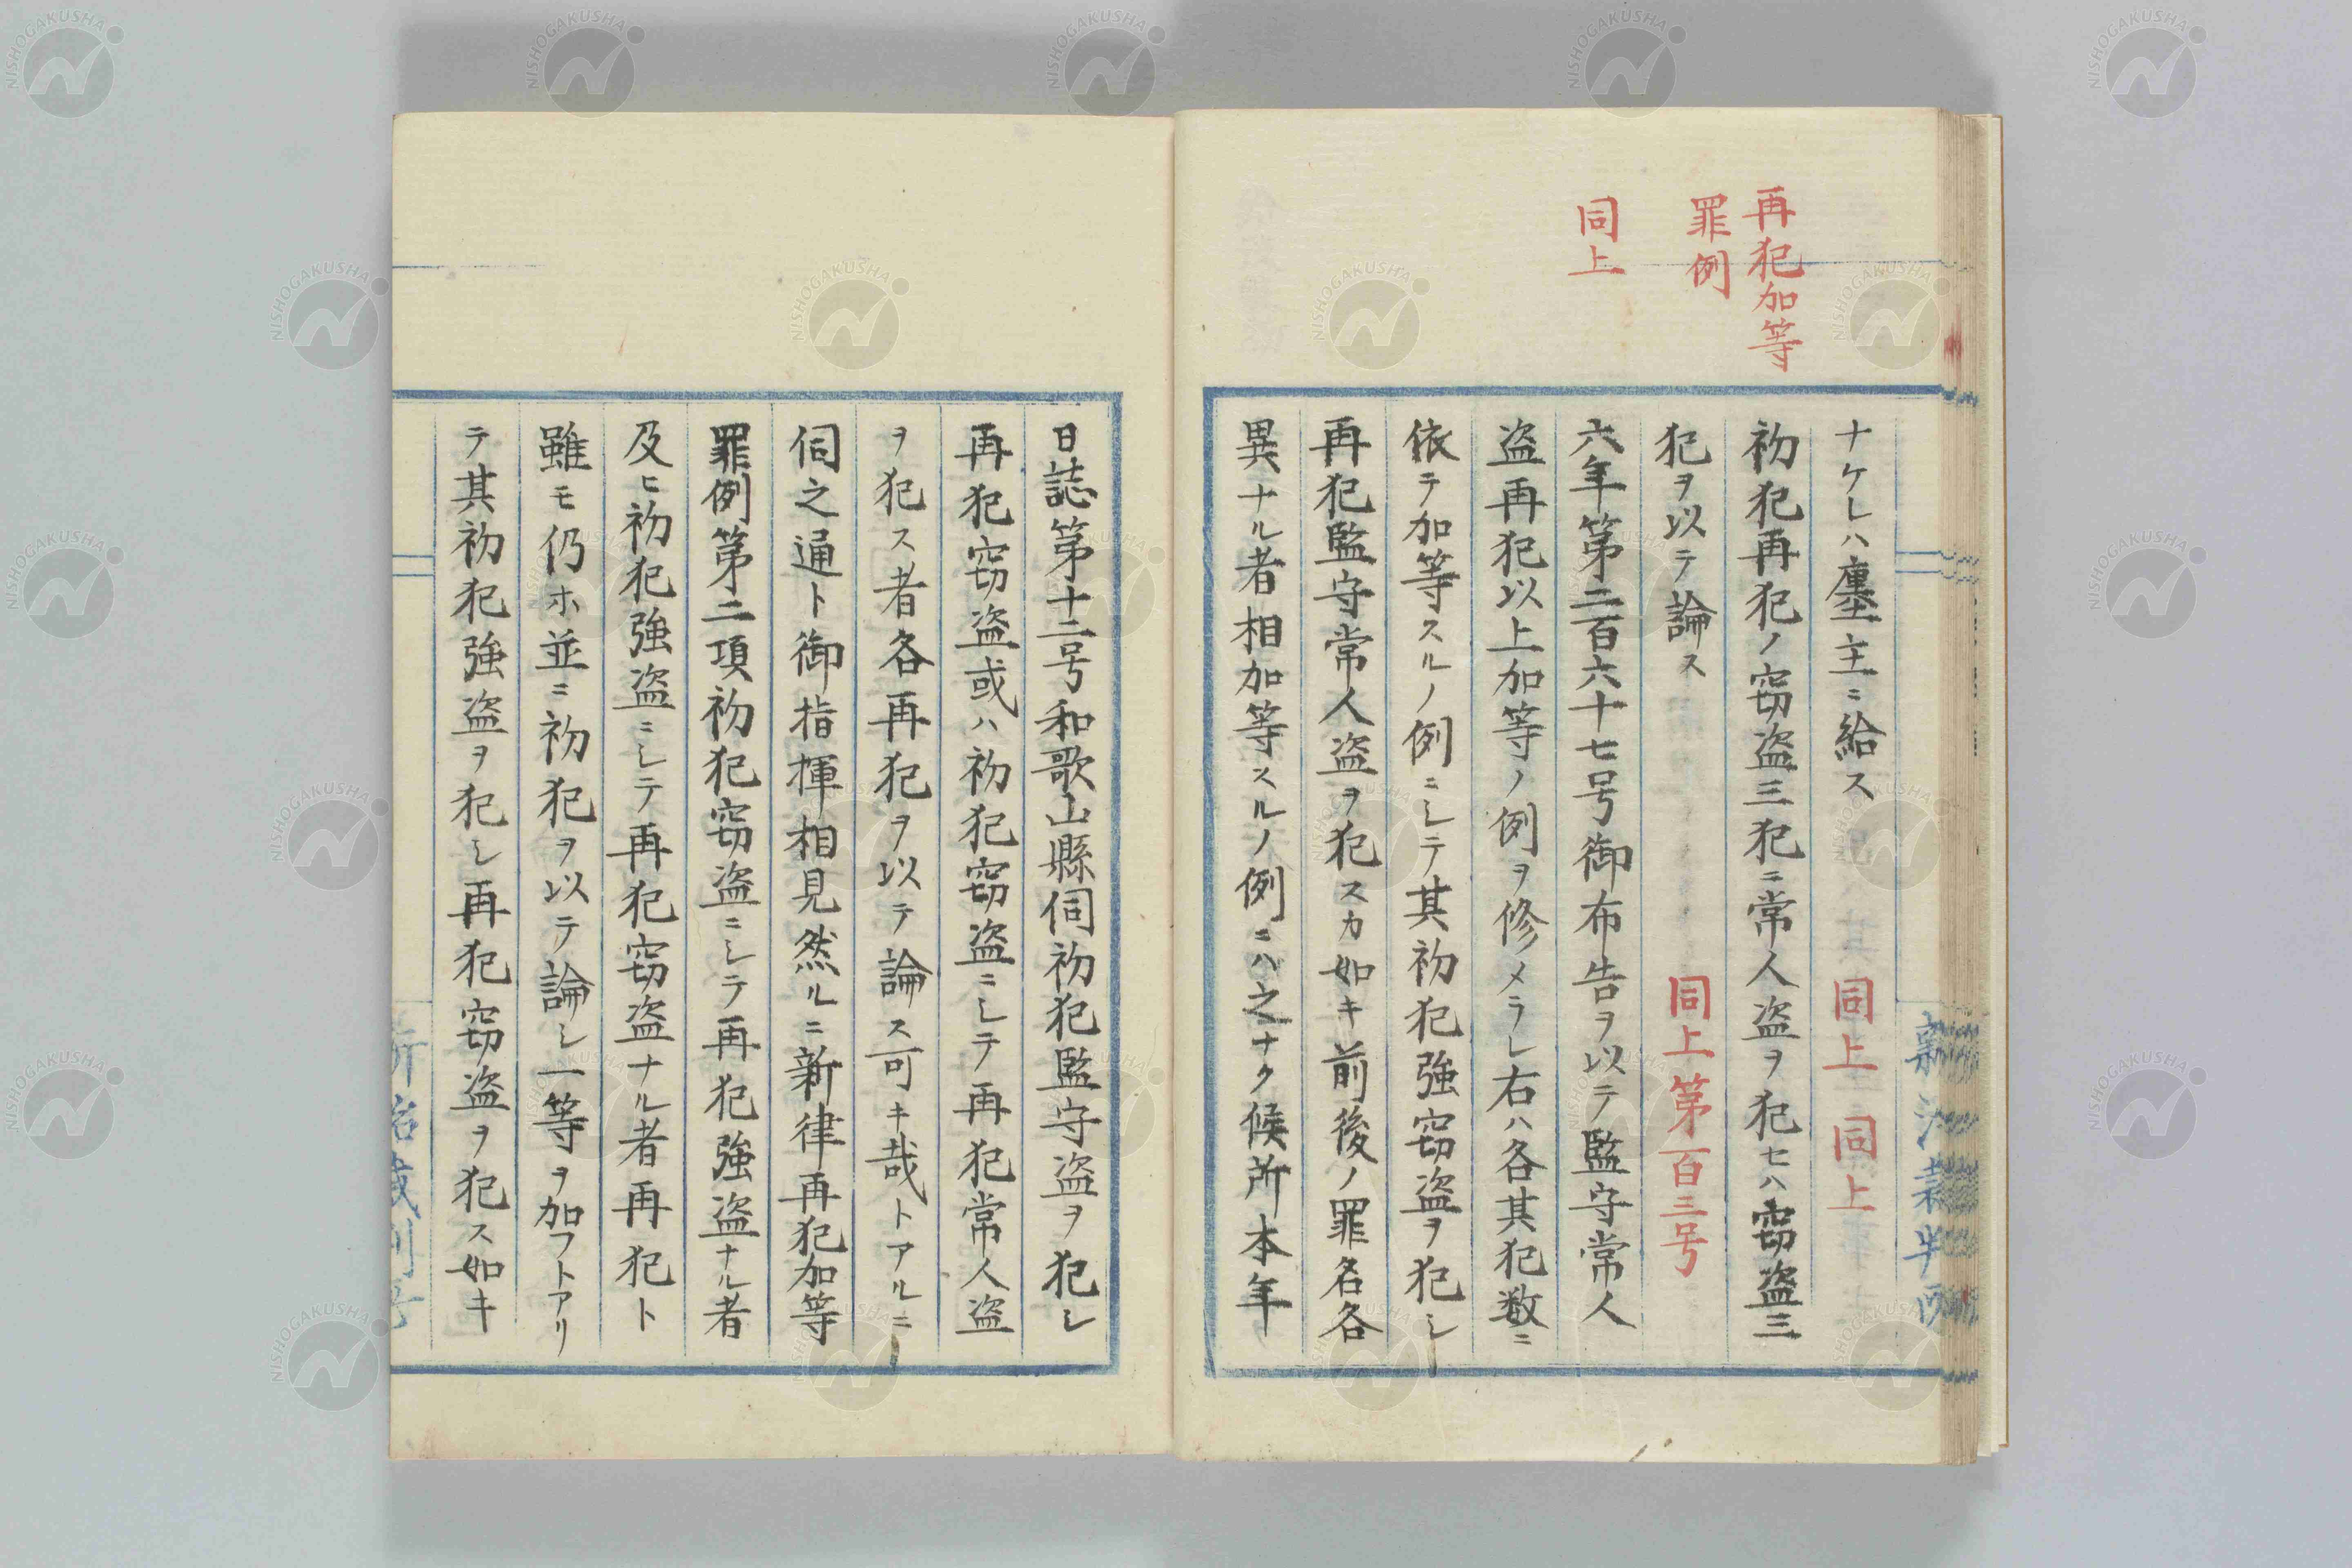 再犯加等
罪例
同上
ナケレハ塵主ニ給ス 同上 同上
初犯再犯ノ窃盗三犯ニ常人盗ヲ犯セハ窃盗三
犯ヲ以テ論ス 同上第百三号
六年第二百六十七号御布告ヲ以テ監守常人
盗再犯以上加等ノ例ヲ修メラレ右ハ各其犯数ニ
依テ加等スルノ例ニシテ其初犯強窃盗ヲ犯シ
再犯監守常人盗ヲ犯スカ如キ前後ノ罪名各
異ナル者相加等スルノ例ニハ之ナク候所本年
日誌第十二号和歌山縣伺初犯監守盗ヲ犯シ
再犯窃盗或ハ初犯窃盗ニシテ再犯常人盗
ヲ犯ス者各再犯ヲ以テ論ス可キ哉トアルニ
伺之通ト御指揮相見然ルニ新律再犯加等
罪例第二項初犯窃盗ニシテ再犯強盗ナル者
及ヒ初犯強盗ニシテ再犯窃盗ナル者再犯ト
雖モ仍ホ並ニ初犯ヲ以テ論シ一等ヲ加フトアリ
テ其初犯強盗ヲ犯シ再犯窃盗ヲ犯ス如キ
NISHOGAKUSHA